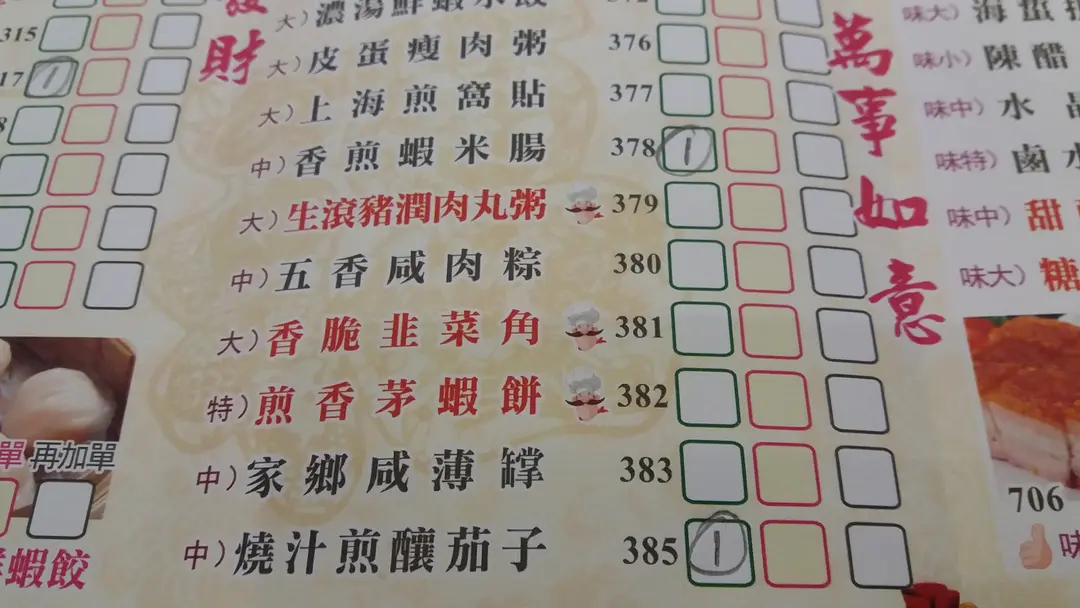 315
17 1
財
大）濃湯鮮蝦水餃
大）皮蛋瘦肉粥 376
大）上海煎窩貼 377
中）香煎蝦米腸 378 1
大）生滾豬潤肉丸粥 379
中）五香咸肉粽 380
大）香脆韭菜角 381
特）煎香茅蝦餅 382
中）家鄉咸薄罉 383
中）燒汁煎釀茄子 385 1
萬事如意
味大）海蜇
味小）陳醋
味中）水晶
味特）鹵水
味中）甜
味大）糖
單 再加單
蝦餃
706
味